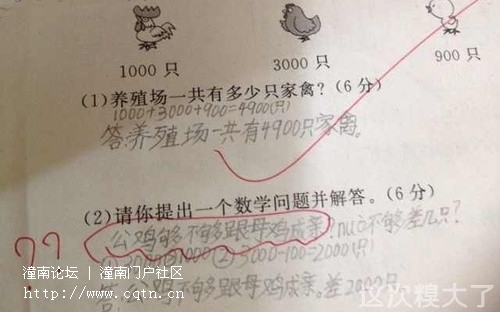 1000只 3000只 900只
(1)养殖场一共有多少只家禽?(6分)
1000+3000+900=4900(只)
答:养殖场一共有4900只家离。
(2)请你提出一个数学问题并解答。(6分)
公鸡够不够跟母鸡成亲?nuò不够差几只?
②3000-100=2000(只)
答:公鸡不够跟母鸡成亲。差2000只
??
潼南论坛 | 潼南门户社区
http://www.cqtn.cn
这次糗大了